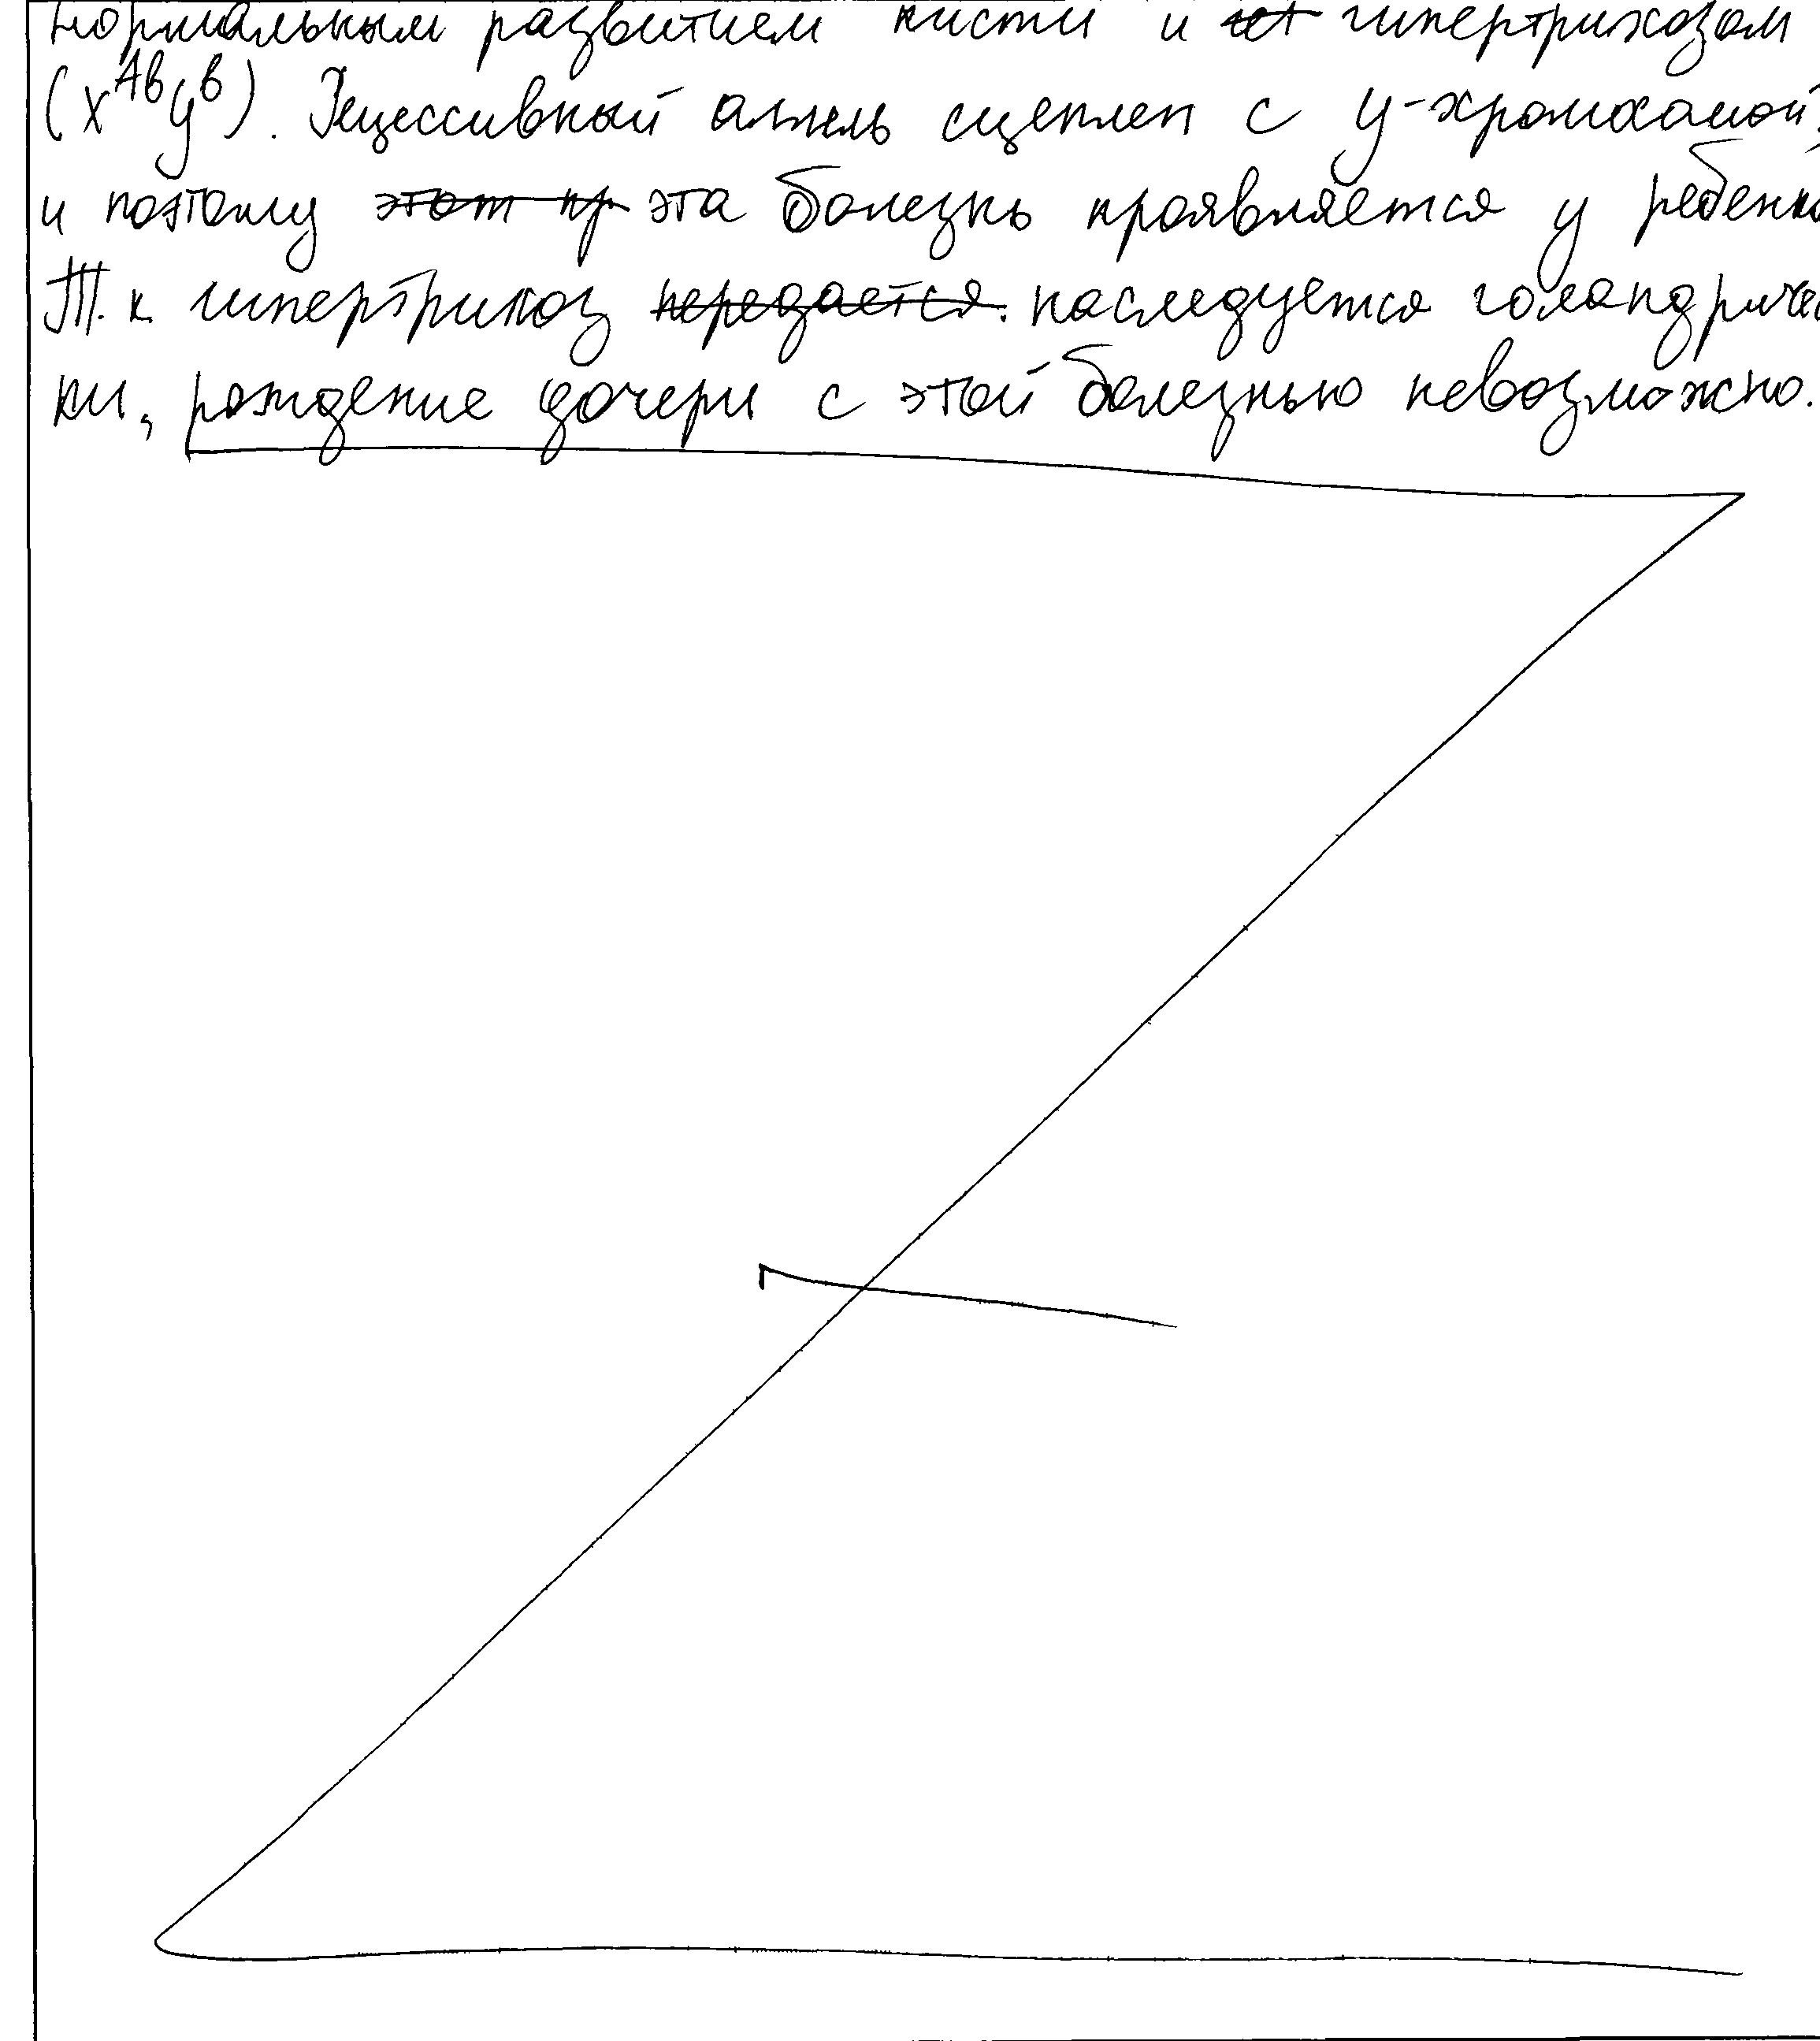 нормальным развитием кисти и гипертрихозом
(X^Ab y^b). Рецессивный аллель сцеплен с y-хромосомой,
и поэтому этот пр эта болезнь проявляется у ребенка
Т.к гипертрихоз передается. наследуется голандричес
ки, рождение дочери с этой болезнью невозможно.